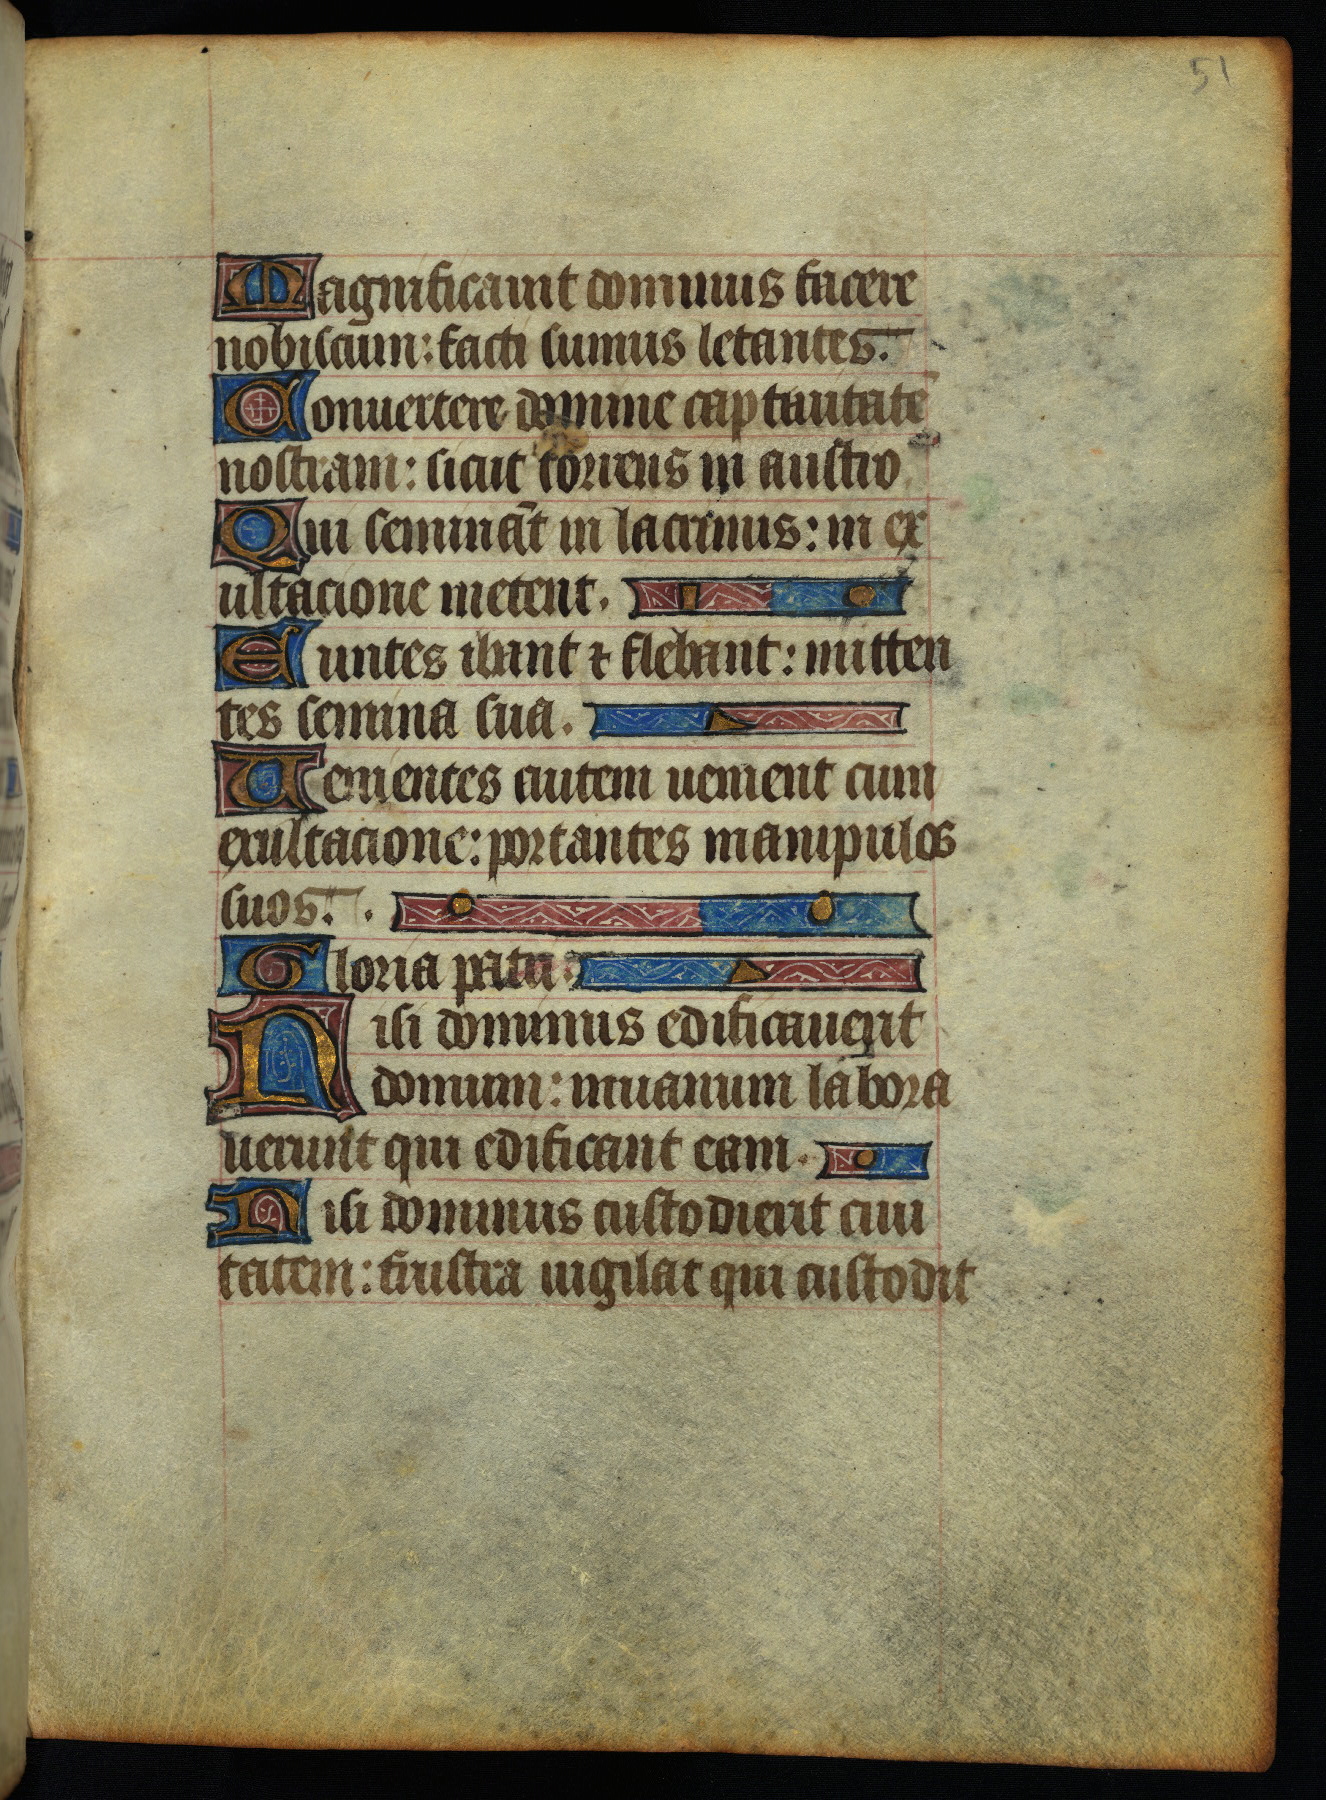 51
Magnificauit dominus facere
nobiscum: facti sumus letantes.
Conuertere domine captiuitatē
nostram: sicut torrens in austro
Qui semināt in lacrimis: in ex
ultacione metent.
Euntes ibant ⁊ flebant: mitten
tes semina sua.
Uenientes autem uenient cum
exultacione: portantes manipulos
suos.
Gloria patri.
Nisi dominus edificauerit
domum: inuanum labora
uerunt qui edificant eam.
Nisi dominus custodierit ciui
tatem: frustra uigilat qui custodit